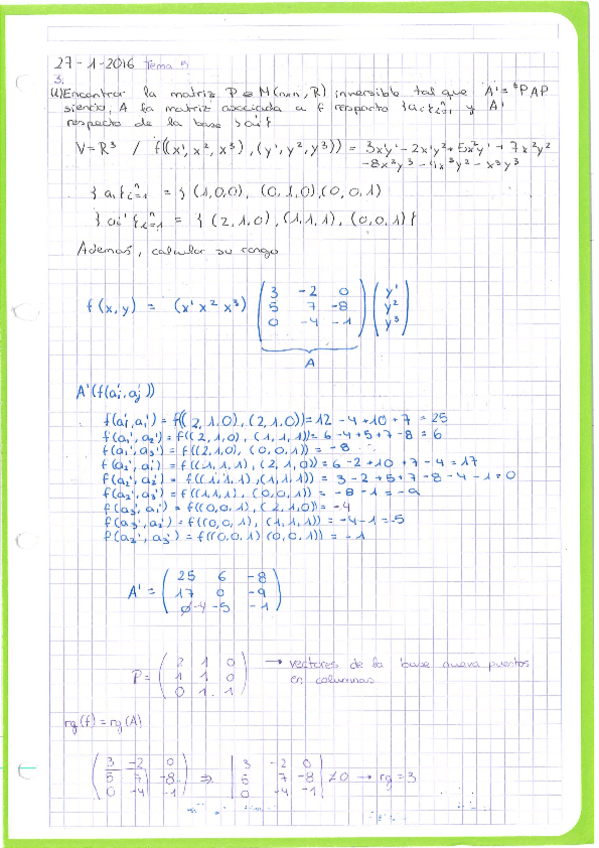 27-1-2016 Tema 5
3.
Encontrar la matriz P ∈ M(nxn, R) inversible tal que A' = ᵗPAP
siendo, A la matriz asociada a f respecto {ai}ⁿᵢ₌₁ y A'
respecto de la base {ai'}
V=R³ / f((x¹, x², x³), (y¹, y², y³)) = 3x¹y¹ - 2x¹y² + 5x²y¹ + 7x²y²
-8x²y³ - 4x³y² - x³y³
{ai}ⁿᵢ₌₁ = {(1,0,0), (0,1,0), (0,0,1)
{ai'}ⁿᵢ₌₁ = {(2,1,0), (1,1,1), (0,0,1)}
Ademas, calcular su rango
f(x,y) = (x¹ x² x³) (3 -2 0 / 5 7 -8 / 0 -4 -1) (y¹ / y² / y³)
A
A'(f(ai', aj'))
f(a1', a1') = f((2,1,0), (2,1,0)) = 12 - 4 + 10 + 7 = 25
f(a1', a2') = f((2,1,0), (1,1,1)) = 6 - 4 + 5 + 7 - 8 = 6
f(a1', a3') = f((2,1,0), (0,0,1)) = -8
f(a2', a1') = f((1,1,1), (2,1,0)) = 6 - 2 + 10 + 7 - 4 = 17
f(a2', a2') = f((1,1,1), (1,1,1)) = 3 - 2 + 5 + 7 - 8 - 4 - 1 = 0
f(a2', a3') = f((1,1,1), (0,0,1)) = -8 - 1 = -9
f(a3', a1') = f((0,0,1), (2,1,0)) = -4
f(a3', a2') = f((0,0,1), (1,1,1)) = -4 - 1 = -5
f(a2', a3') = f((0,0,1) (0,0,1)) = -1
A' = (25 6 -8 / 17 0 -9 / -4 -5 -1)
P = (2 1 0 / 1 1 0 / 0 1 1) → vectores de la base nueva puestos
en columnas
rg(f) = rg(A)
(3 -2 0 / 5 7 -8 / 0 -4 -1) ⇒ |3 -2 0 / 5 7 -8 / 0 -4 -1| ≠ 0 → rg = 3